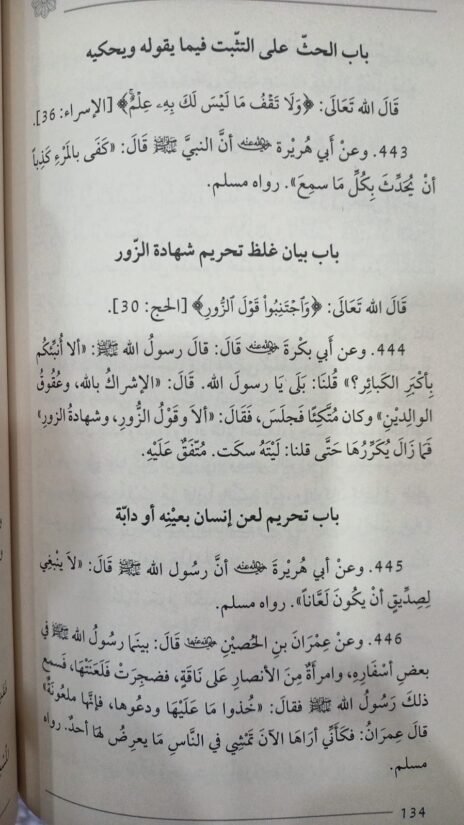 باب الحثّ على التثبّت فيما يقوله ويحكيه
قَالَ الله تَعَالَى: ﴿وَلَا تَقْفُ مَا لَيْسَ لَكَ بِهِۦ عِلْمٌ﴾ [الإسراء: 36].
443. وعنْ أبي هُريْرة رضي الله عنه أنَّ النبيَّ ﷺ قَالَ: «كَفَى بالمَرْءِ كَذِباً
أنْ يُحَدِّثَ بِكُلِّ مَا سمِعَ». رواه مسلم.
باب بيان غلظ تحريم شهادة الزّور
قَالَ الله تَعَالَى: ﴿وَٱجْتَنِبُوا۟ قَوْلَ ٱلزُّورِ﴾ [الحج: 30].
444. وعن أبي بكْرة رضي الله عنه قَالَ: قالَ رسولُ الله ﷺ: «ألا أُنبِّئكُم
بِأكْبَرِ الكَبائِر؟» قُلنَا: بَلَى يَا رسولَ الله. قَالَ: «الإشراكُ بالله، وعُقُوقُ
الوالِديْنِ» وكان مُتَّكِئًا فَجلَسَ، فَقَالَ: «ألاَ وقَوْلُ الزُّورِ، وشهادةُ الزورِ»
فَمَا زَالَ يُكَرِّرُهَا حَتَّى قلنا: لَيْتَهُ سكَت. مُتّفَقٌ عَلَيْهِ.
باب تحريم لعن إنسان بعيْنِه أو دابّة
445. وعنْ أبي هُريْرة رضي الله عنه أنَّ رسُول الله ﷺ قَالَ: «لاَ ينْبغِي
لِصِدِّيقٍ أنْ يكُونَ لَعَّاناً». رواه مسلم.
446. وعنْ عِمْرَانَ بنِ الحُصيْنِ رضي الله عنهما قَالَ: بينَما رسُولُ الله ﷺ في
بعضِ أسْفَارِهِ، وامرأَةٌ مِنَ الأنصارِ عَلى نَاقَةٍ، فضجِرَتْ فَلَعَنَتْهَا، فَسمع
ذلكَ رَسُولُ الله ﷺ فقالَ: «خُذوا مَا عَلَيْهَا ودعُوها، فإنَّها ملعُونَةٌ»
قالَ عِمرَانُ: فكَأنِّي أرَاهَا الآنَ تَمْشِي في النَّاسِ مَا يعرِضُ لهَا أحدٌ. رواه
مسلم.
134